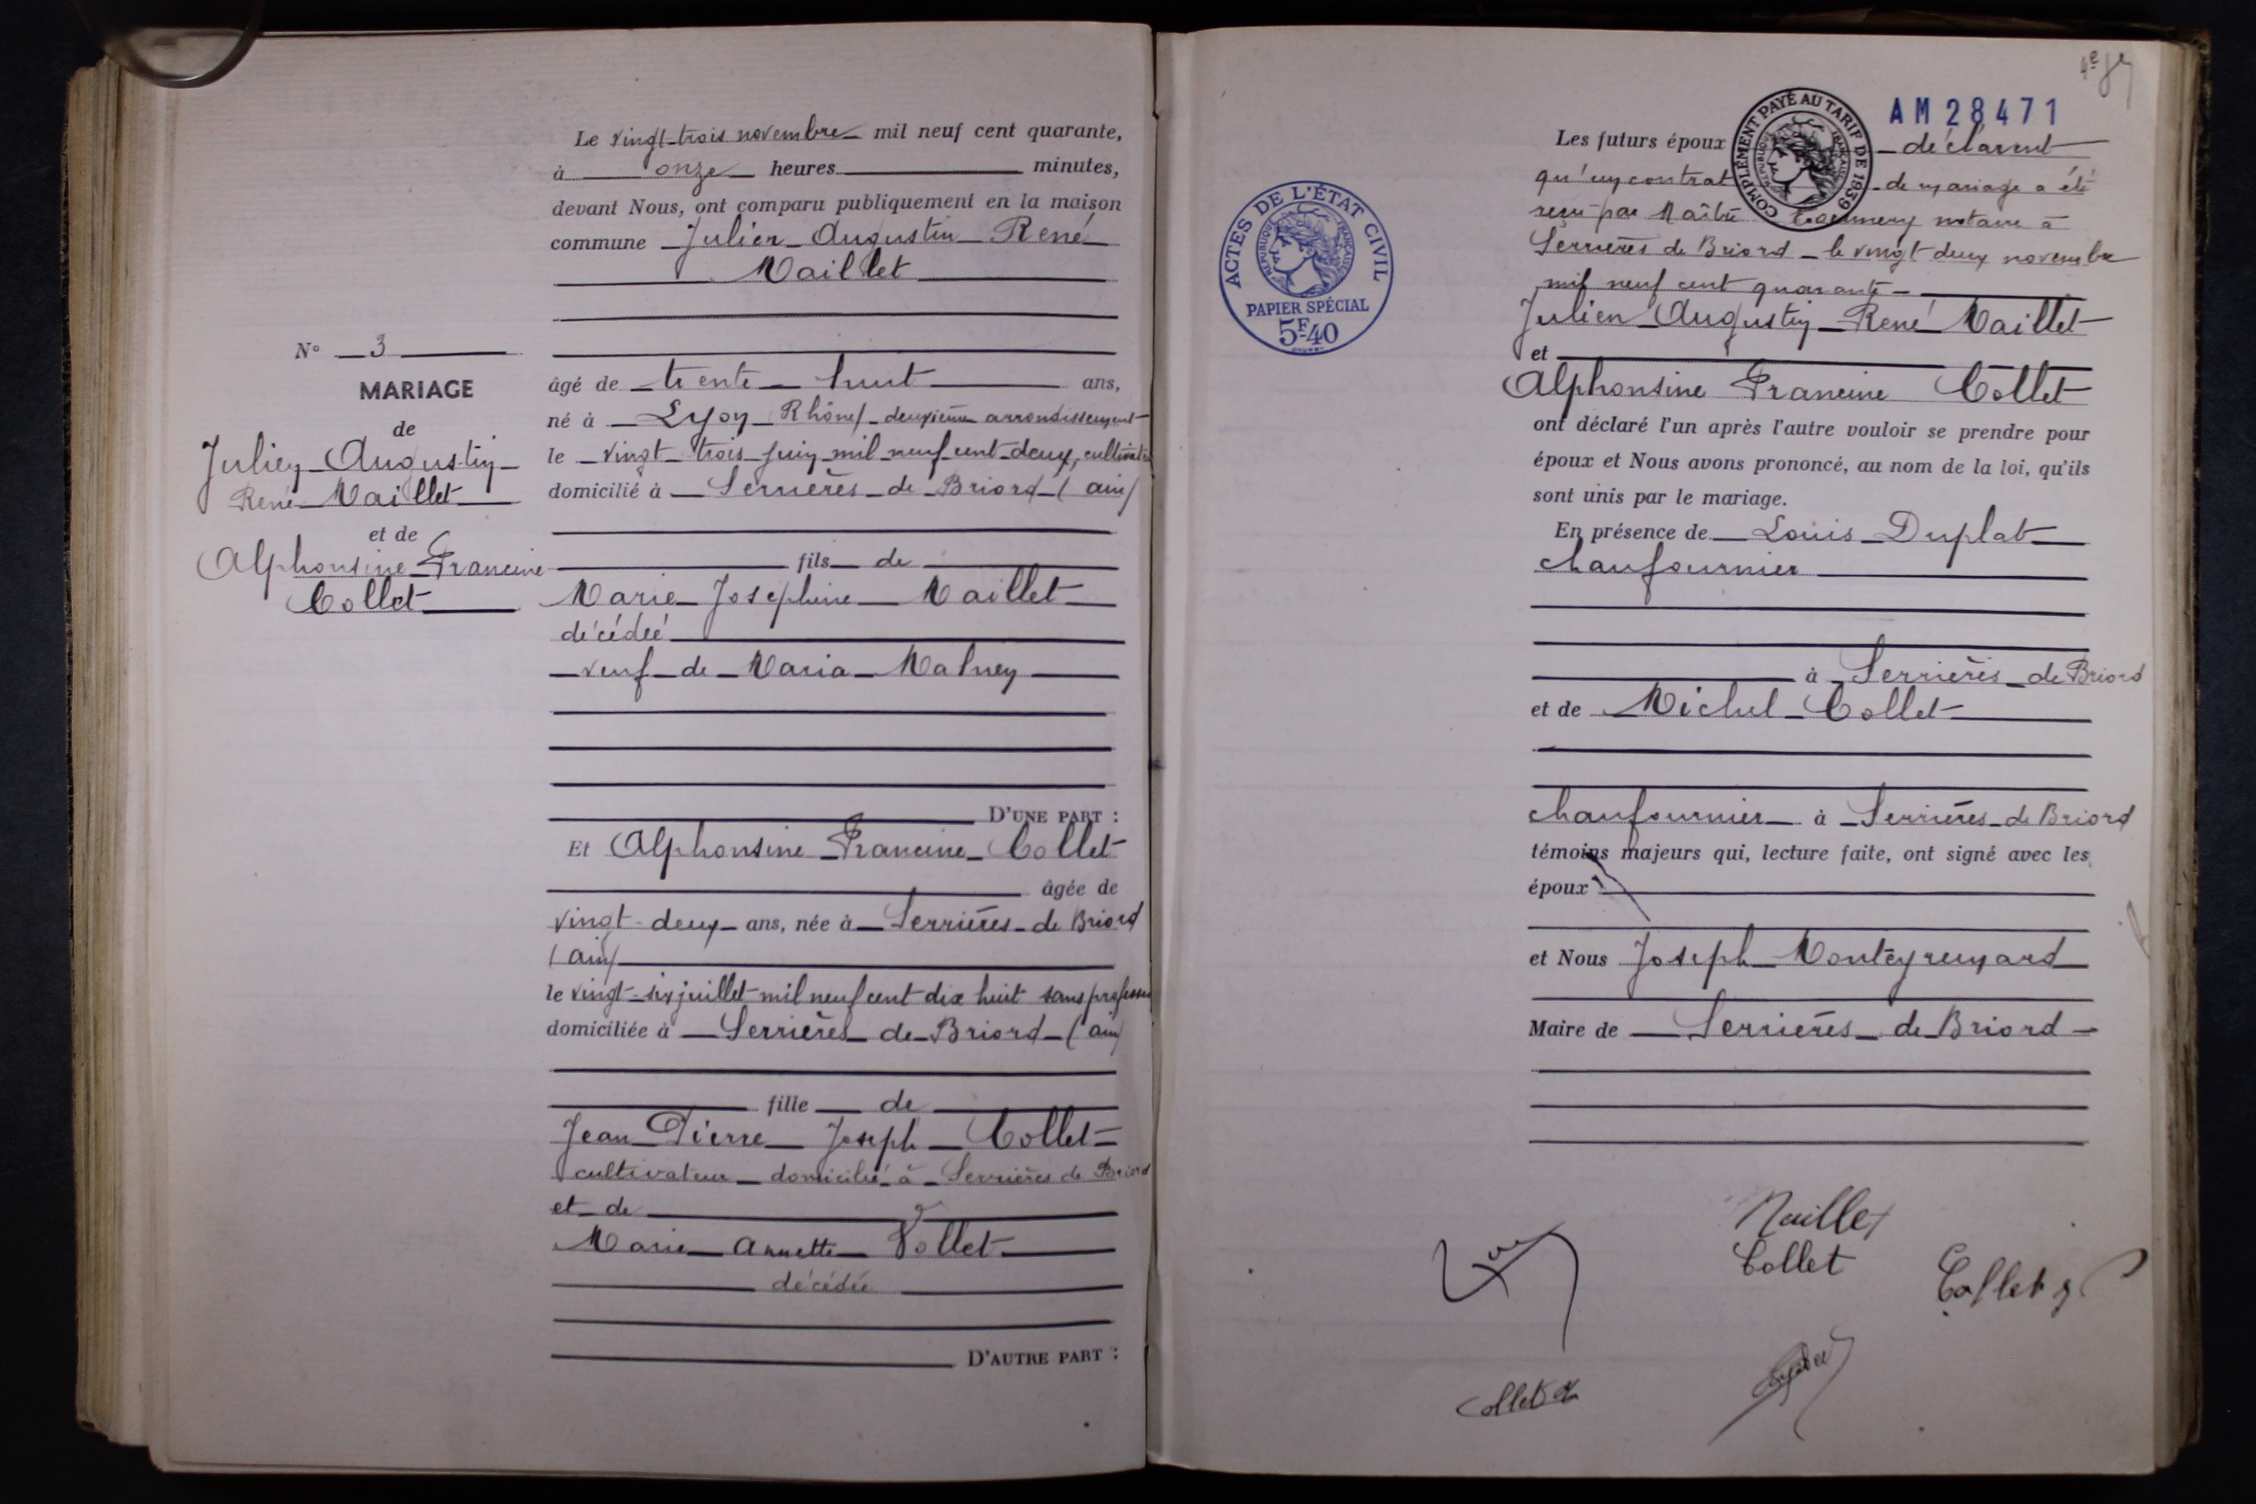 Le vingt-trois novembre mil neuf cent quarante,
à onze heures minutes,
devant Nous, ont comparu publiquement en la maison
commune Julien Augustin René
Maillet
N° 3
MARIAGE
de
Julien Augustin
René Maillet
et de
Alphonsine Francine
Collet
âgé de trente huit ans,
né à Lyon Rhône/ deuxième arrondissement
le vingt trois juin mil neuf cent deux, cultivateur
domicilié à Serrières de Briord (ain)
fils de
Marie Josephine Maillet
décédée
veuf de Maria
D'UNE PART :
Et Alphonsine Francine Collet
âgée de
vingt deux ans, née à Serrières de Briord
(ain)
le vingt-six juillet mil neuf cent dix huit sans profession
domiciliée à Serrières de Briord (ain)
fille de
Jean Pierre Joseph Collet
cultivateur domicilié à Serrières de Briord
et de
Marie Annette Vollet
décédée
D'AUTRE PART :
ACTES DE L'ÉTAT CIVIL
RÉPUBLIQUE FRANÇAISE
PAPIER SPÉCIAL
5F40
COMPLÉMENT PAYÉ AU TARIF DE 1939
RÉPUBLIQUE FRANÇAISE
AM 28471
Les futurs époux déclarent
qu'un contrat de mariage a été
reçu par Maître notaire à
Serrières de Briord le vingt deux novembre
mil neuf cent quarante
Julien Augustin René Maillet
et
Alphonsine Francine Collet
ont déclaré l'un après l'autre vouloir se prendre pour
époux et Nous avons prononcé, au nom de la loi, qu'ils
sont unis par le mariage.
En présence de Louis Duplat
chaufournier
à Serrières de Briord
et de Michel Collet
chaufournier à Serrières de Briord
témoins majeurs qui, lecture faite, ont signé avec les
époux
et Nous Joseph Monteyremard
Maire de Serrières de Briord
Maillet
Collet
Collet
Collet